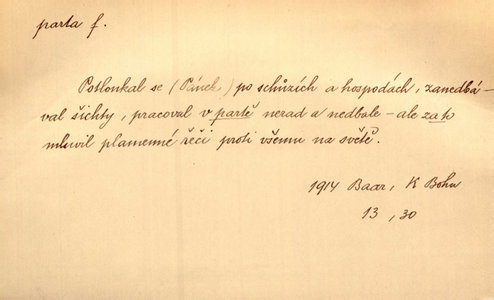 parta f.
Potloukal se (Pínek) po schůzích a hospodách, zanedbá-
val šichty, pracoval v partě nerad a nedbale – ale za to
mluvil plamenné řeči proti všemu na světě.
1914 Baar, K Bohu
13, 30